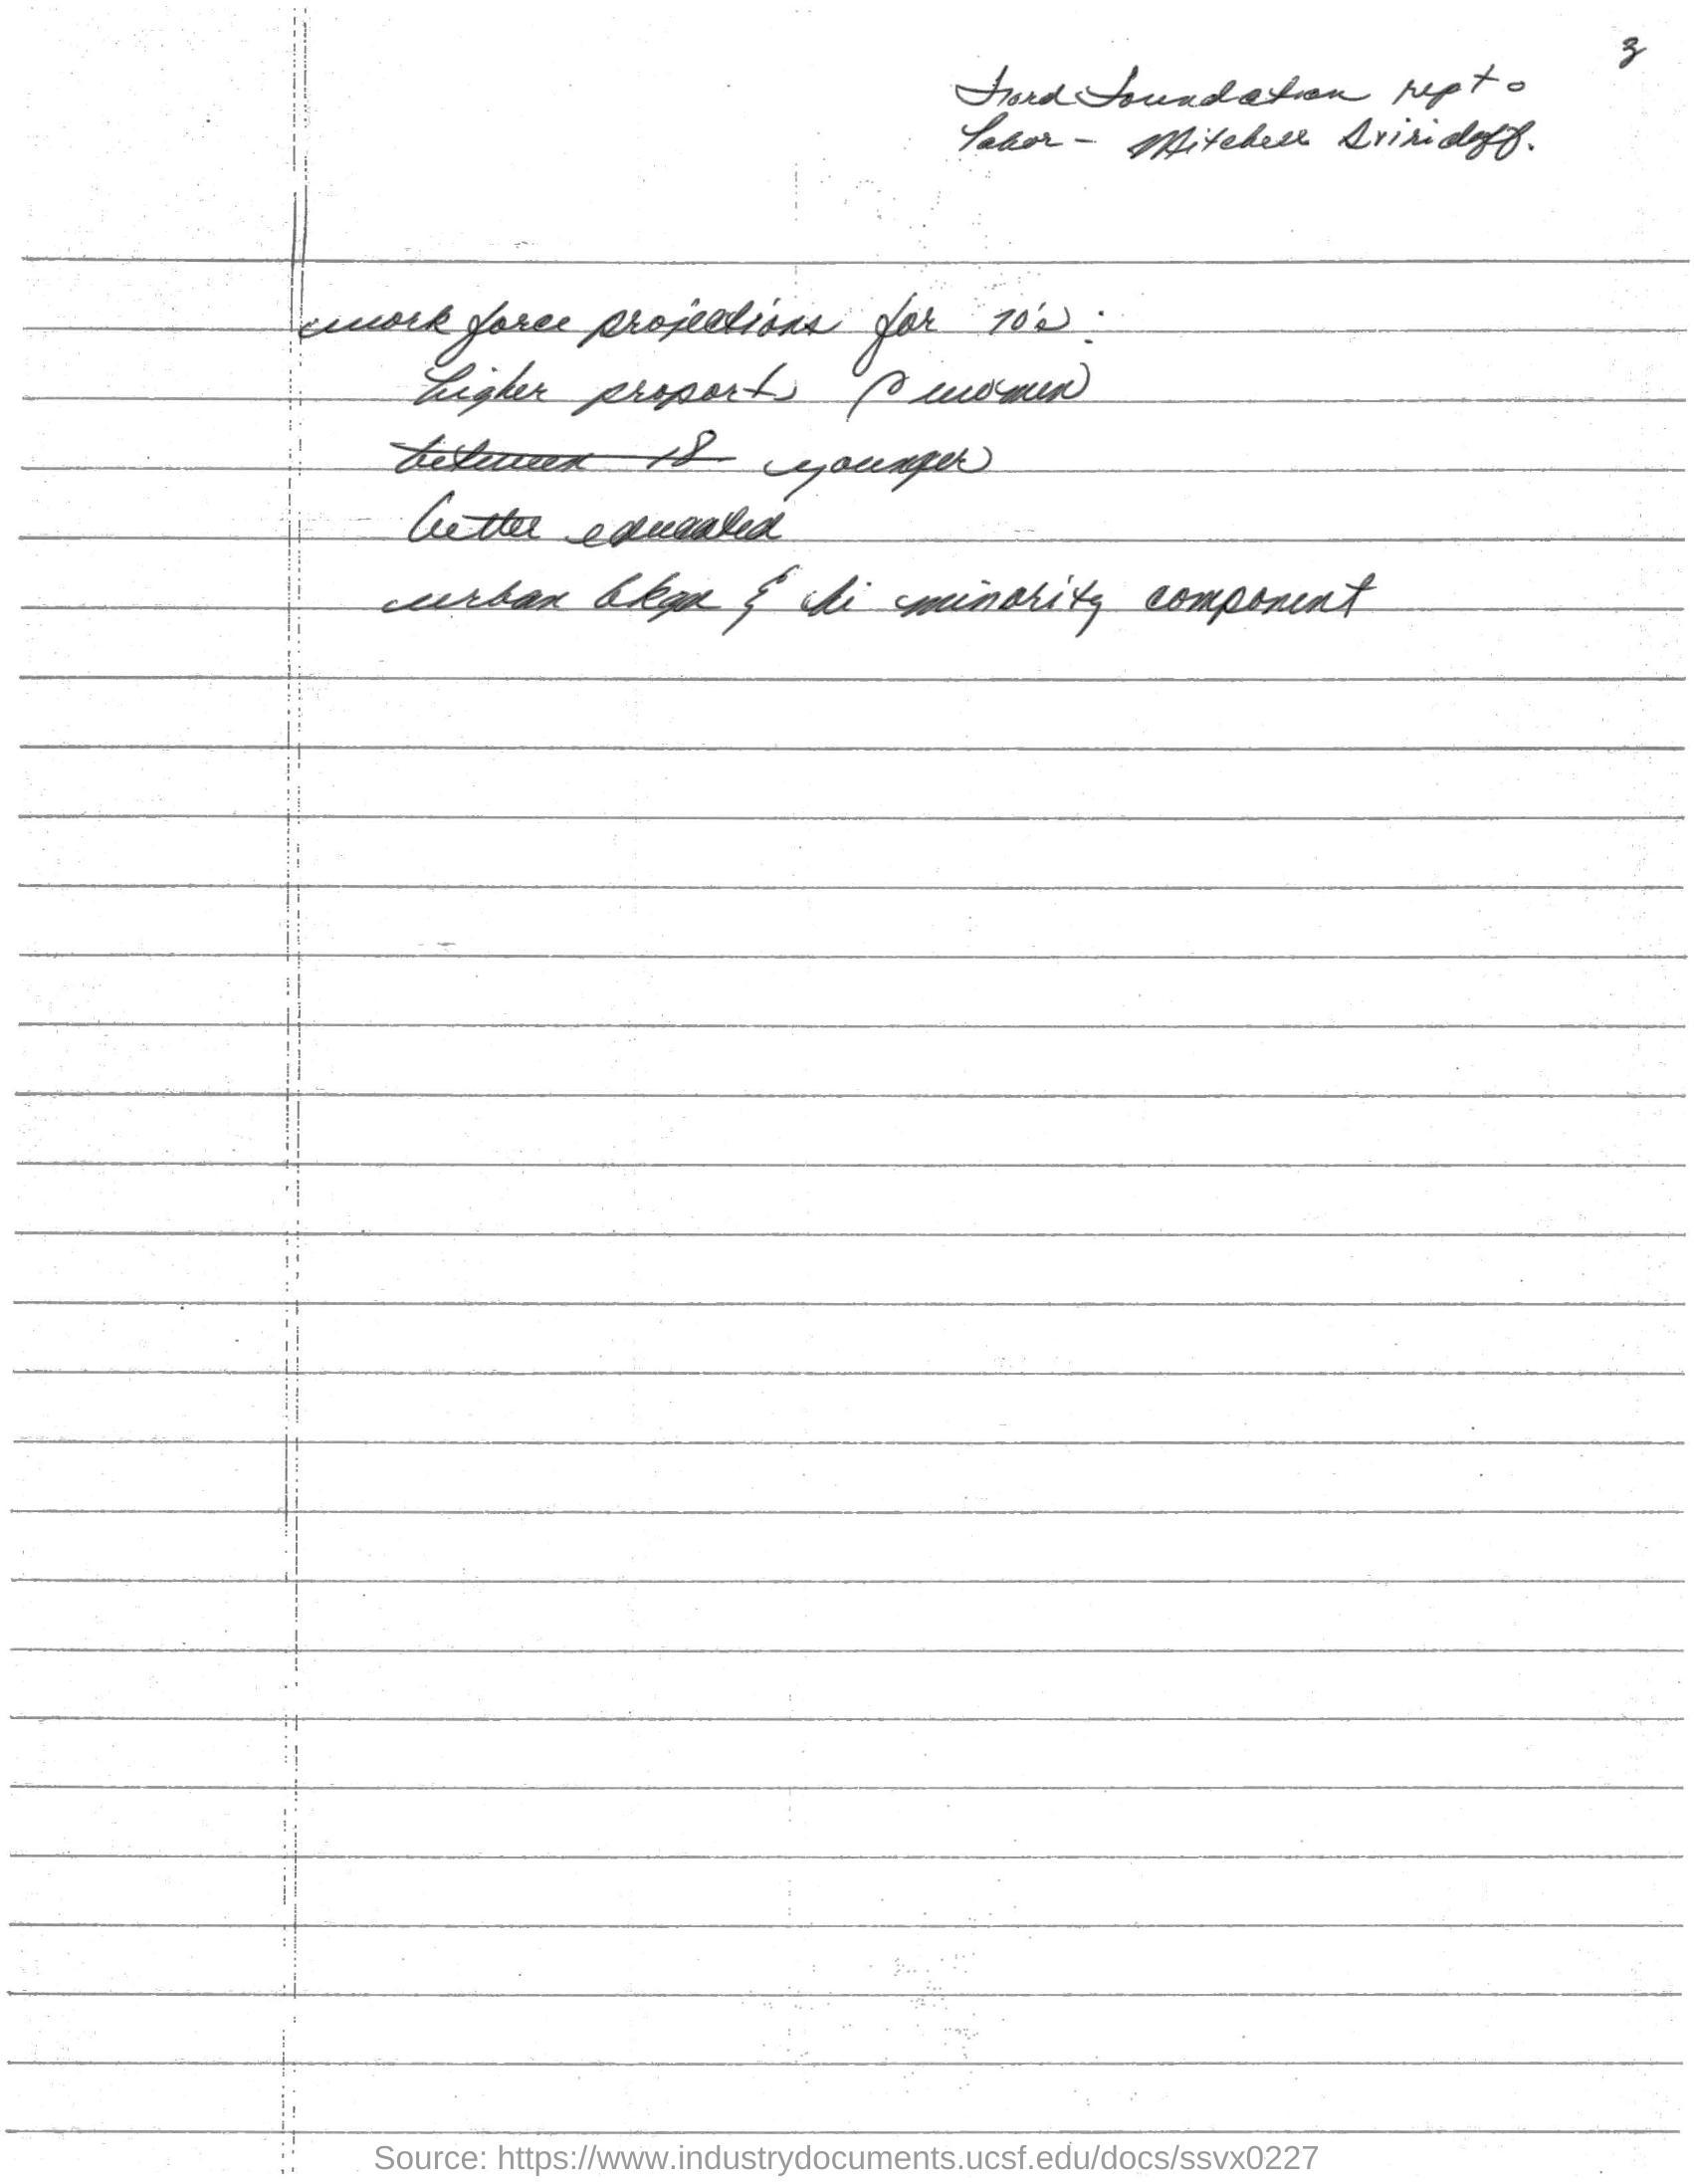 3
Ford Foundation rept o
Labor - Mitchell Sviridoff.
work force projections for 70's:
higher proport women
between 18 younger
better educated
urban bkgn & hi minority component
Source: https://www.industrydocuments.ucsf.edu/docs/ssvx0227